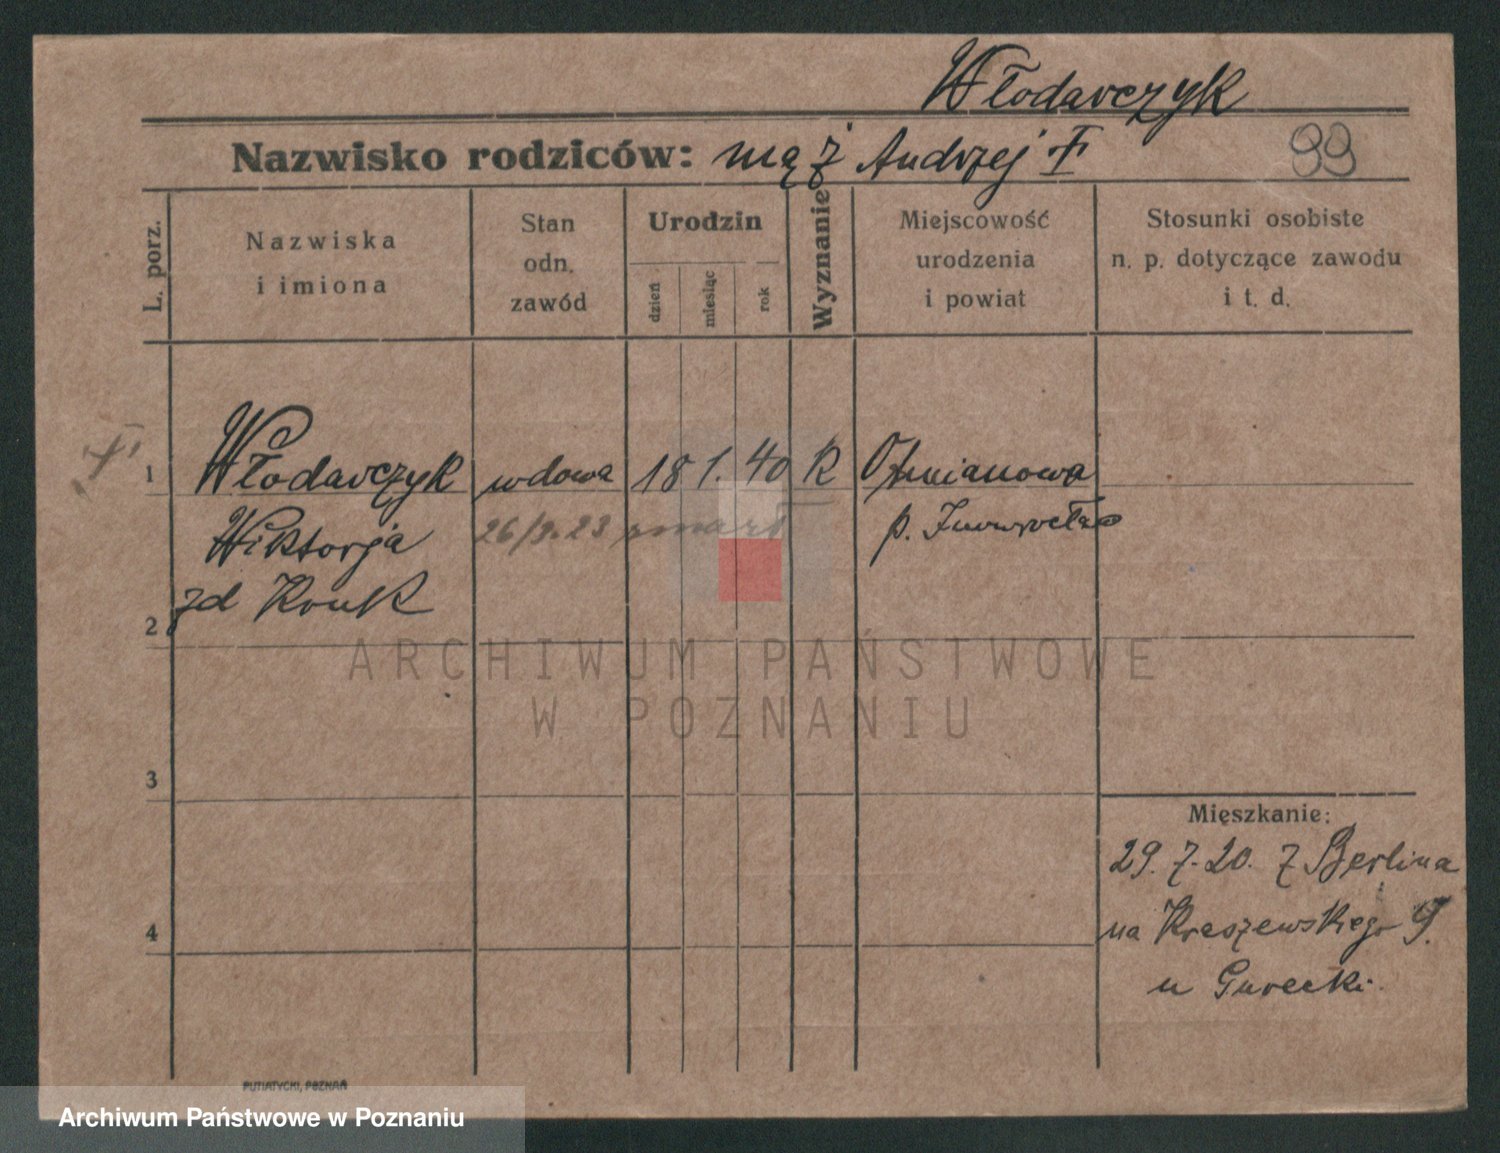 Włodarczyk
Nazwisko rodziców: mąż Andrzej † 99
L. porz.
Nazwiska
i imiona
Stan
odn.
zawód
Urodzin
dzień
miesiąc
rok
Wyznanie
Miejscowość
urodzenia
i powiat
Stosunki osobiste
n. p. dotyczące zawodu
i t. d.
1 Włodarczyk wdowa 18 1. 40 K
Wiktorja 26/3.23 p.
zd
2
ARCHIWUM PAŃSTWOWE
W POZNANIU
3
4
Mieszkanie:
29. 7. 20. z Berlina
na Kraszewskiego 9.
u Gurecki.
PUTIATYCKI, POZNAŃ
Archiwum Państwowe w Poznaniu